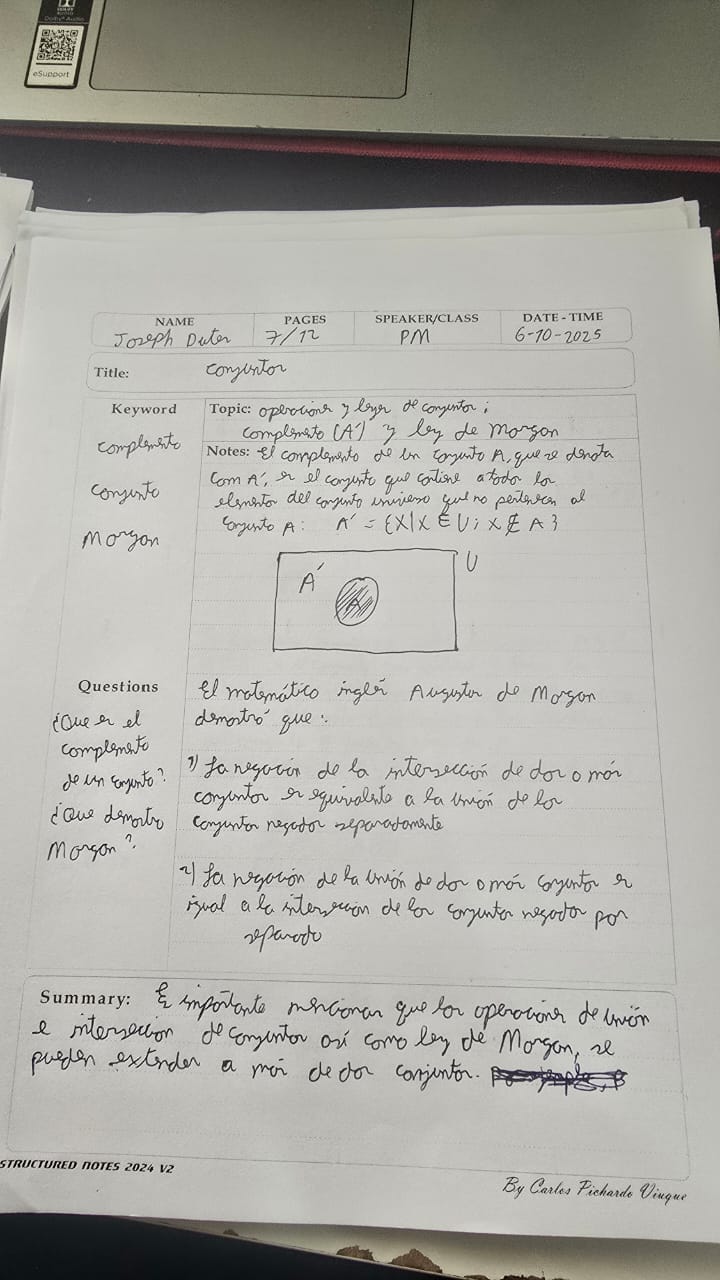 Dolby Audio
eSupport
NAME PAGES SPEAKER/CLASS DATE - TIME
Joseph 7/12 PM 6-10-2025
Title: conjuntos
Keyword
complemento
conjunto
Morgan
Topic: operaciones y leyes de conjuntos;
complemento (A') y ley de Morgan
Notes: El complemento de un conjunto A, que se denota
com A', es el conjunto que contiene a todos los
elementos del conjunto universo que no pertenecen al
conjunto A: A' = {X|X ∈ U; X ∉ A}
U
A'
A
Questions
¿Que es el
complemento
de un conjunto?
¿Que demostro
Morgan?
El matemático inglés Augustus de Morgan
demostró que:
1) La negación de la intersección de dos o más
conjuntos es equivalente a la unión de los
conjuntos negados separadamente
2) La negación de la unión de dos o más conjuntos es
igual a la interseción de los conjuntos negados por
separado
Summary: Es importante mencionar que los operaciones de unión
e interseción de conjuntos así como ley de Morgan, se
pueden extender a más de dos conjuntos.
STRUCTURED NOTES 2024 V2
By Carlos Pichardo Viuque